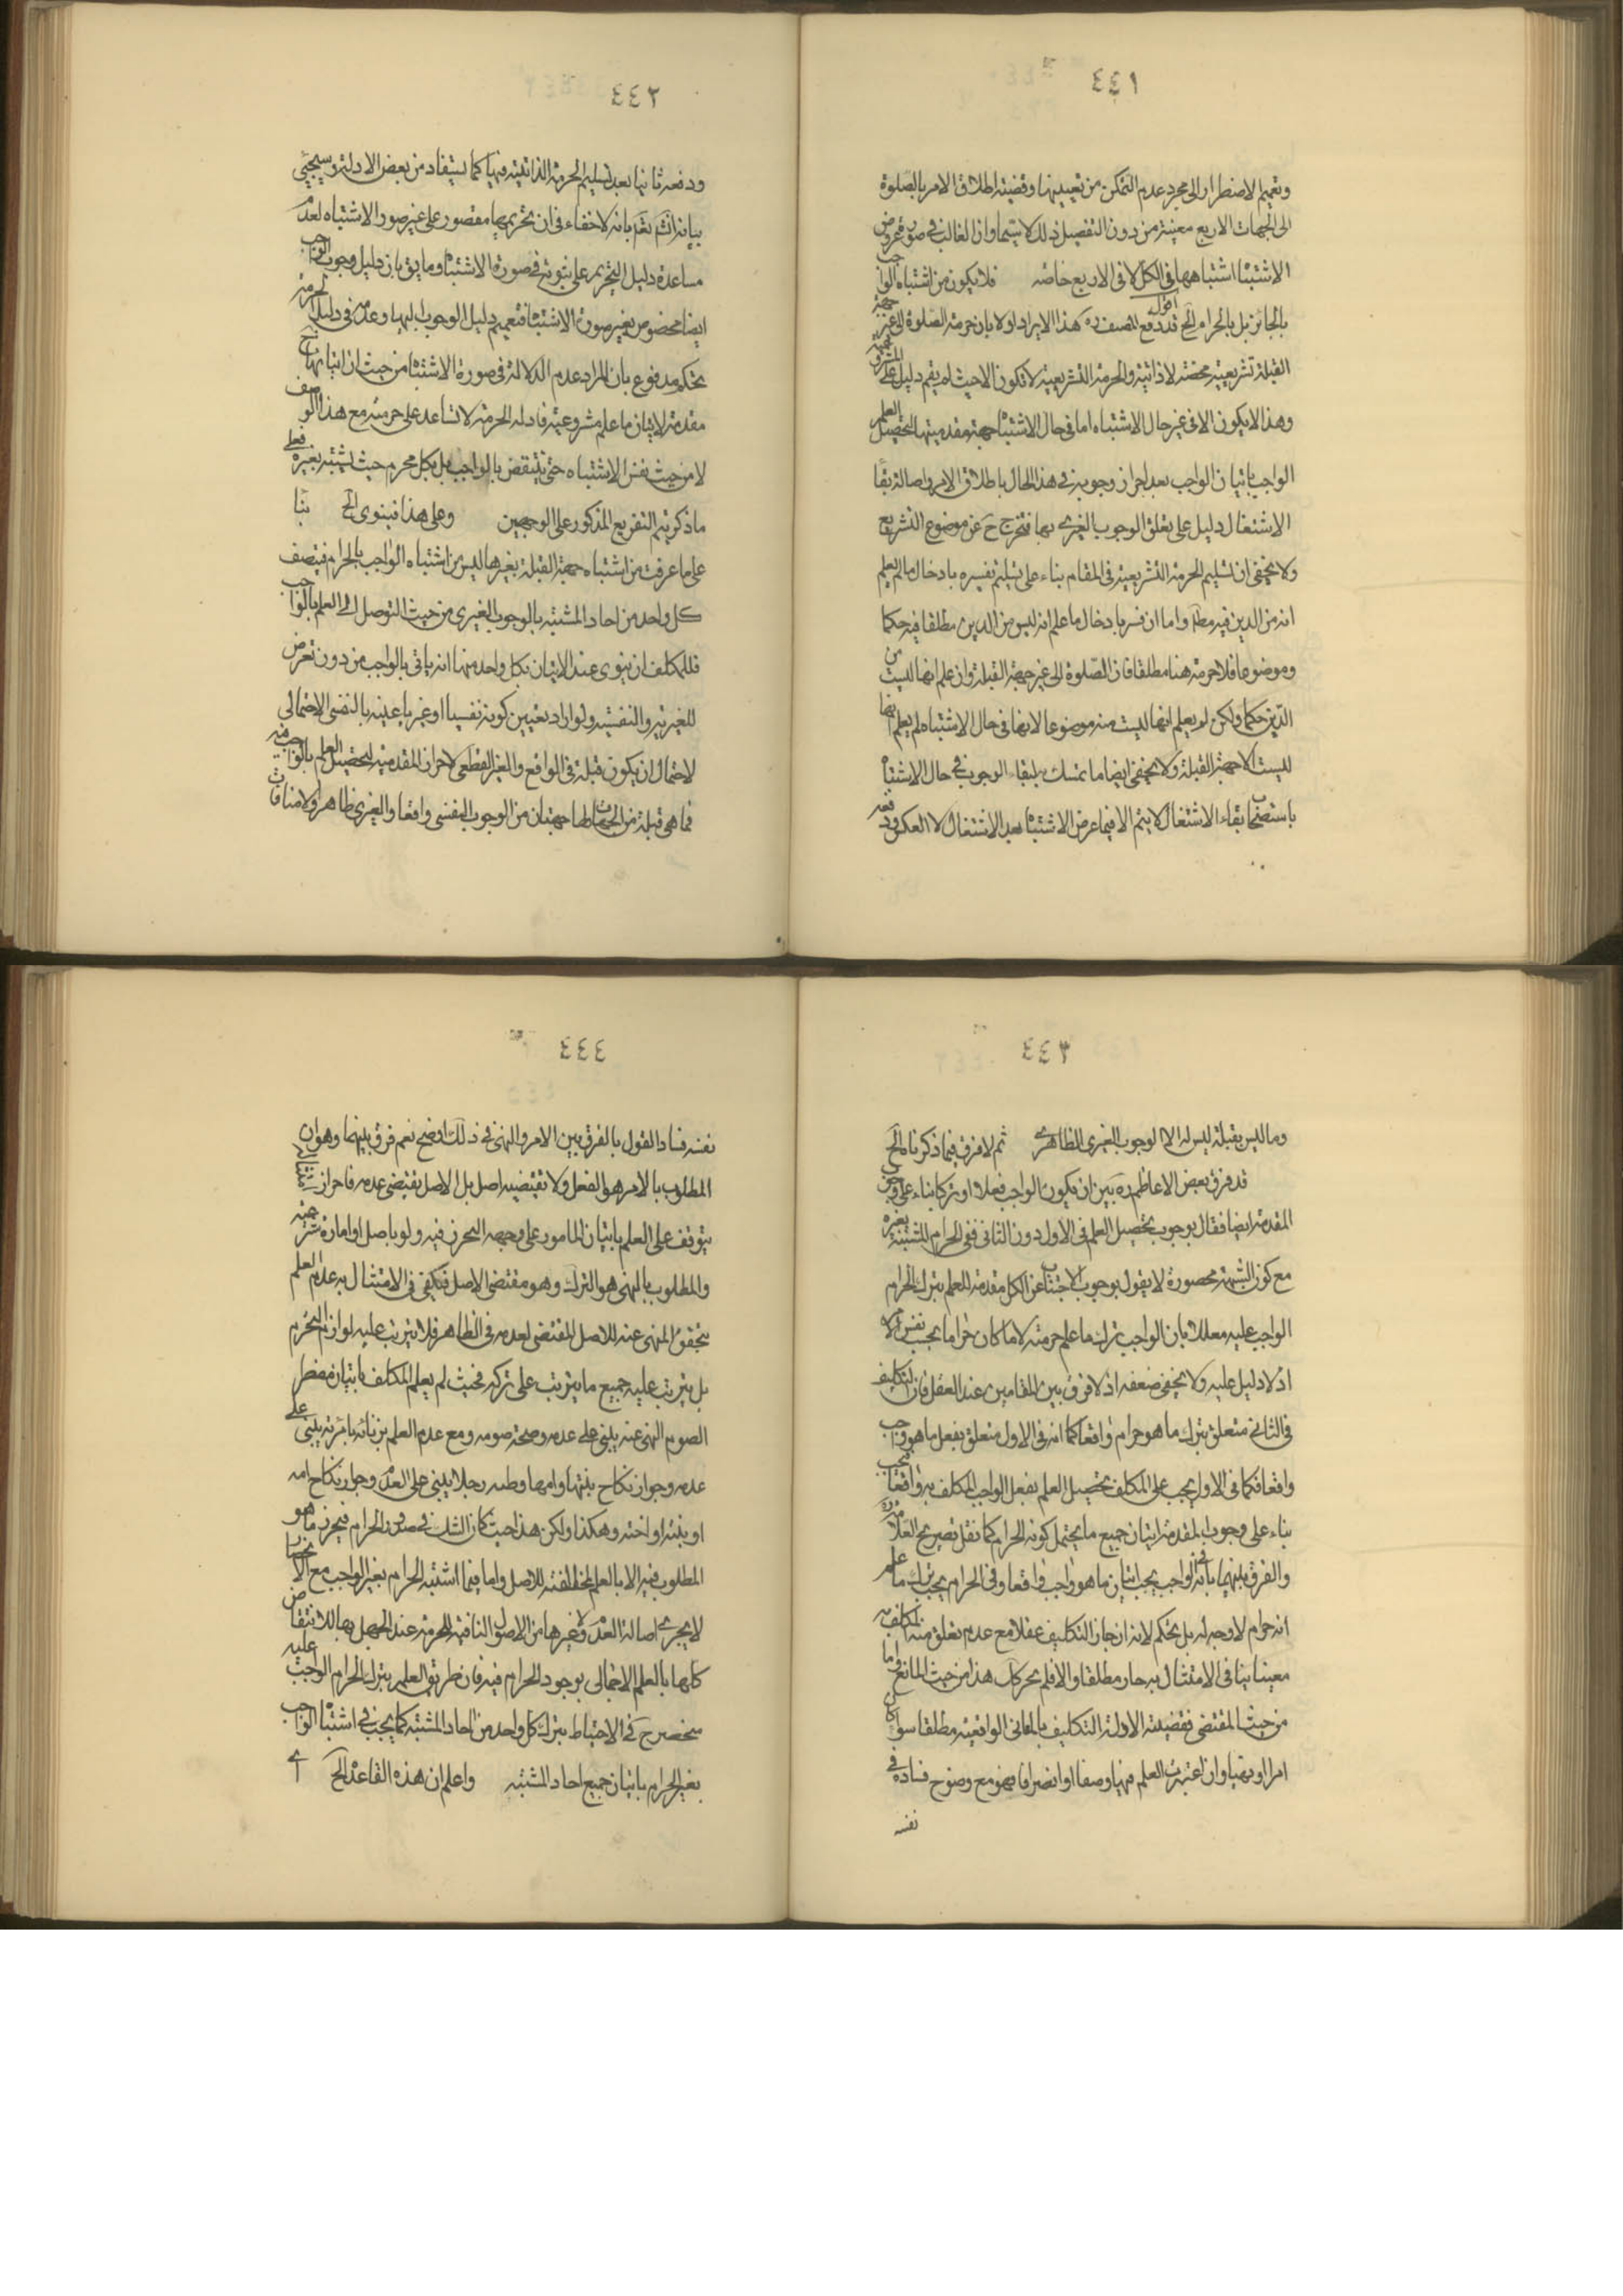 ٤٤١
وتعميم الاضطرار الى مجرد عدم التمكن من تعيينها وقضيته اطلاق الامر بالصلوة
الى الجهات الاربع معينة من دون التفصيل ذلك لا سيما وان الغالب في صورة عروض
الاشتباه اشتباهها في الكل لا في الاربع خاصة فلا يكون من اشتباه الواجب
بالجائز بل بالحرام الخ اقول قد دفع المصنف ره هذا الايراد اولا بان حرمة الصلوة الى غير جهة
القبلة تشريعية محضة لا ذاتية والحرمة التشريعية لا تكون الا حيث لم يقم دليل على المشروعية
وهذا لا يكون الا في غير حال الاشتباه اما في حال الاشتباه جهة مقدميتها لتحصيل العلم
الواجب باتيان الواجب بعد احراز وجوبه في هذا الحال باطلاق الامر واصالة بقاء
الاشتغال دليل على تعلق الوجوب الغيري بها فتخرج ح عن موضوع التشريع
ولا يخفى ان تسليم الحرمة التشريعية في المقام بناء على تسليم تفسيره بادخال ما لم يعلم
انه من الدين فيه مطلقا واما ان فسر بادخال ما علم انه ليس من الدين مطلقا فيه حكما
وموضوعا فلا حرمة هنا مطلقا فان الصلوة الى غير جهة القبلة وان علم انها ليست من
الدين حكما ولكن لو يعلم انها ليست منه موضوعا لانها في حال الاشتباه لم يعلم انها
ليست الا جهة القبلة ولا يخفى ايضا ما تمسك لبقاء الوجوب في حال الاشتباه
باستصحاب بقاء الاشتغال لا يتم الا فيما عرض الاشتباه بعد الاشتغال لا العكس ودفعه
٤٤٢
ودفعه ثانيا بعد تسليم الحرمة الذاتية فيها كما يستفاد من بعض الادلة وسيجئ
بيانه انشم تعم بانه لا خفاء في ان تحريمها مقصور على غير صور الاشتباه لعدم
مساعدة دليل التحريم على ثبوته في صورة الاشتباه وما يق بان دليل وجوب الواجب
ايضا مخصوص بغير صورة الاشتباه فتعميم دليل الوجوب اليها وعدمه في دليل الحرمة
تحكم مدفوع بان المراد عدم الدلالة في صورة الاشتباه من حيث ان اتيانها ح
مقدمة لاتيان ما علم مشروعيته فادلة الحرمة لا تساعد على حرمته مع هذا الوصف
لا من حيث نفس الاشتباه حتى ينتقض بالواجب بل بكل محرم حيث يشتبه بغيره فعلى
ما ذكر يتم التفريع المذكور على الوجهين وعلى هذا فينوى الخ بنا
على ما عرفت من اشتباه جهة القبلة بغيرها ليس من اشتباه الواجب بالحرام فيتصف
كل واحد من احاد المشتبه بالوجوب الغيرى من حيث التوصل الى العلم بالواجب
فللمكلف ان ينوى عند الاتيان بكل واحد منها انه ياتى بالواجب من دون تعرض
للغيرية والنفسية ولو اراد تعيين كونه نفسيا او غيريا عينه بالنفسى الاحتمالى
لاحتمال ان يكون قبلة في الواقع والغير القطعى لاحراز المقدمية لتحصيل العلم بالواجب فيه
فما هى قبلة من الجهات لها جهتان من الوجوب النفسى واقعا والغيرى ظاهرا ولا منافات
٤٤٣
وما ليس بقبلة ليس له الا الوجوب الغيرى الظاهرى ثم لا فرق فيما ذكرناه الخ
قد فرق بعض الاعاظم ره بين ان يكون الواجب فعلا او تركا بناء على وجوب
المقدمة ايضا فقال بوجوب تحصيل العلم في الاول دون الثانى ففى الحرام المشتبه بغيره
مع كون الشبهة محصورة لا يقول بوجوب الاجتناب عن الكل مقدمة للعلم بترك الحرام
الواجب عليه معللا بان الواجب ترك ما علم حرمته لا ما كان حراما بحسب نفس الامر
اذ لا دليل عليه ولا يخفى ضعفه اذ لا فرق بين المقامين عند العقل فان التكليف
فى الثانى متعلق بترك ما هو حرام واقعا كما انه في الاول متعلق بفعل ما هو واجب
واقعا فكما في الاول يجب على المكلف تحصيل العلم بفعل الواجب المكلف به واقعا فيجب
بناء على وجوب المقدمة اتيان جميع ما يحتمل كونه الحرام كما نقل تصريح العلامة ره
والفرق بينهما بان في الواجب يجب اتيان ما هو واجب واقعا وفى الحرام يجب ترك ما علم
انه حرام لا وجه له بل تحكم لانه ان جاز التكليف عقلا مع عدم تعلق منه المكلف به
معينا ينافى الامتثال به جاز مطلقا والا فلم يحر كل هذا من حيث المانع واما
من حيث المقتضى فقضية الادلة التكليف بالمعانى الواقعية مطلقا سواء كان
امرا او نهيا وان اعتبرت العلم فيها وصفا او انصرافا فهو مع وضوح فساده في
نفسه
٤٤٤
نفسه فساد القول بالفرق بين الامر والنهى في ذلك اوضح نعم فرق بينهما وهو ان
المطلوب بالامر هو الفعل ولا تقتضيه اصل بل الاصل تقتضى عدمه فاحراز
يتوقف على العلم باتيان المامور على وجهه المحرز فيه ولو باصل او امارة شرعية
والمطلوب بالنهى هو الترك وهو مقتضى الاصل فيكفى في الامتثال به عدم العلم
بتحقق المنهى عنه للاصل المقتضى لعدمه فى الظاهر فلا يترتب عليه لوازم المحرم
بل يترتب عليه جميع ما يترتب على تركه فحيث لم يعلم المكلف باتيان مفطر
الصوم المنهى عنه يبنى على عدمه وصحة صومه ومع عدم العلم بزنائه بامرئة يبنى على
عدمه وجواز نكاح بنتها وامها وطيه رجلا يبنى على العدم وجواز نكاح امه
او بنته او اخته وهكذا ولكن هذا حيث كان الشك في صدور الحرام فيحرز ما هو
المطلوب فيه الا بالعلم بمخالفته للاصل واما فيما اشتبه الحرام بغير الواجب مع الانحصار
لا يجرى اصالة العدم ولا غيرها من الاصول النافية للحرمة عند الجهل بها للانتقاض
كلها بالعلم الاجمالى بوجود الحرام فيه فان طريق العلم بترك الحرام الواجب عليه
منحصر ح في الاحتياط بترك كل واحد من احاد المشتبه كما يجب في اشتباه الواجب
بغير الحرام باتيان جميع احاد المشتبه واعلم ان هذه القاعدة الخ